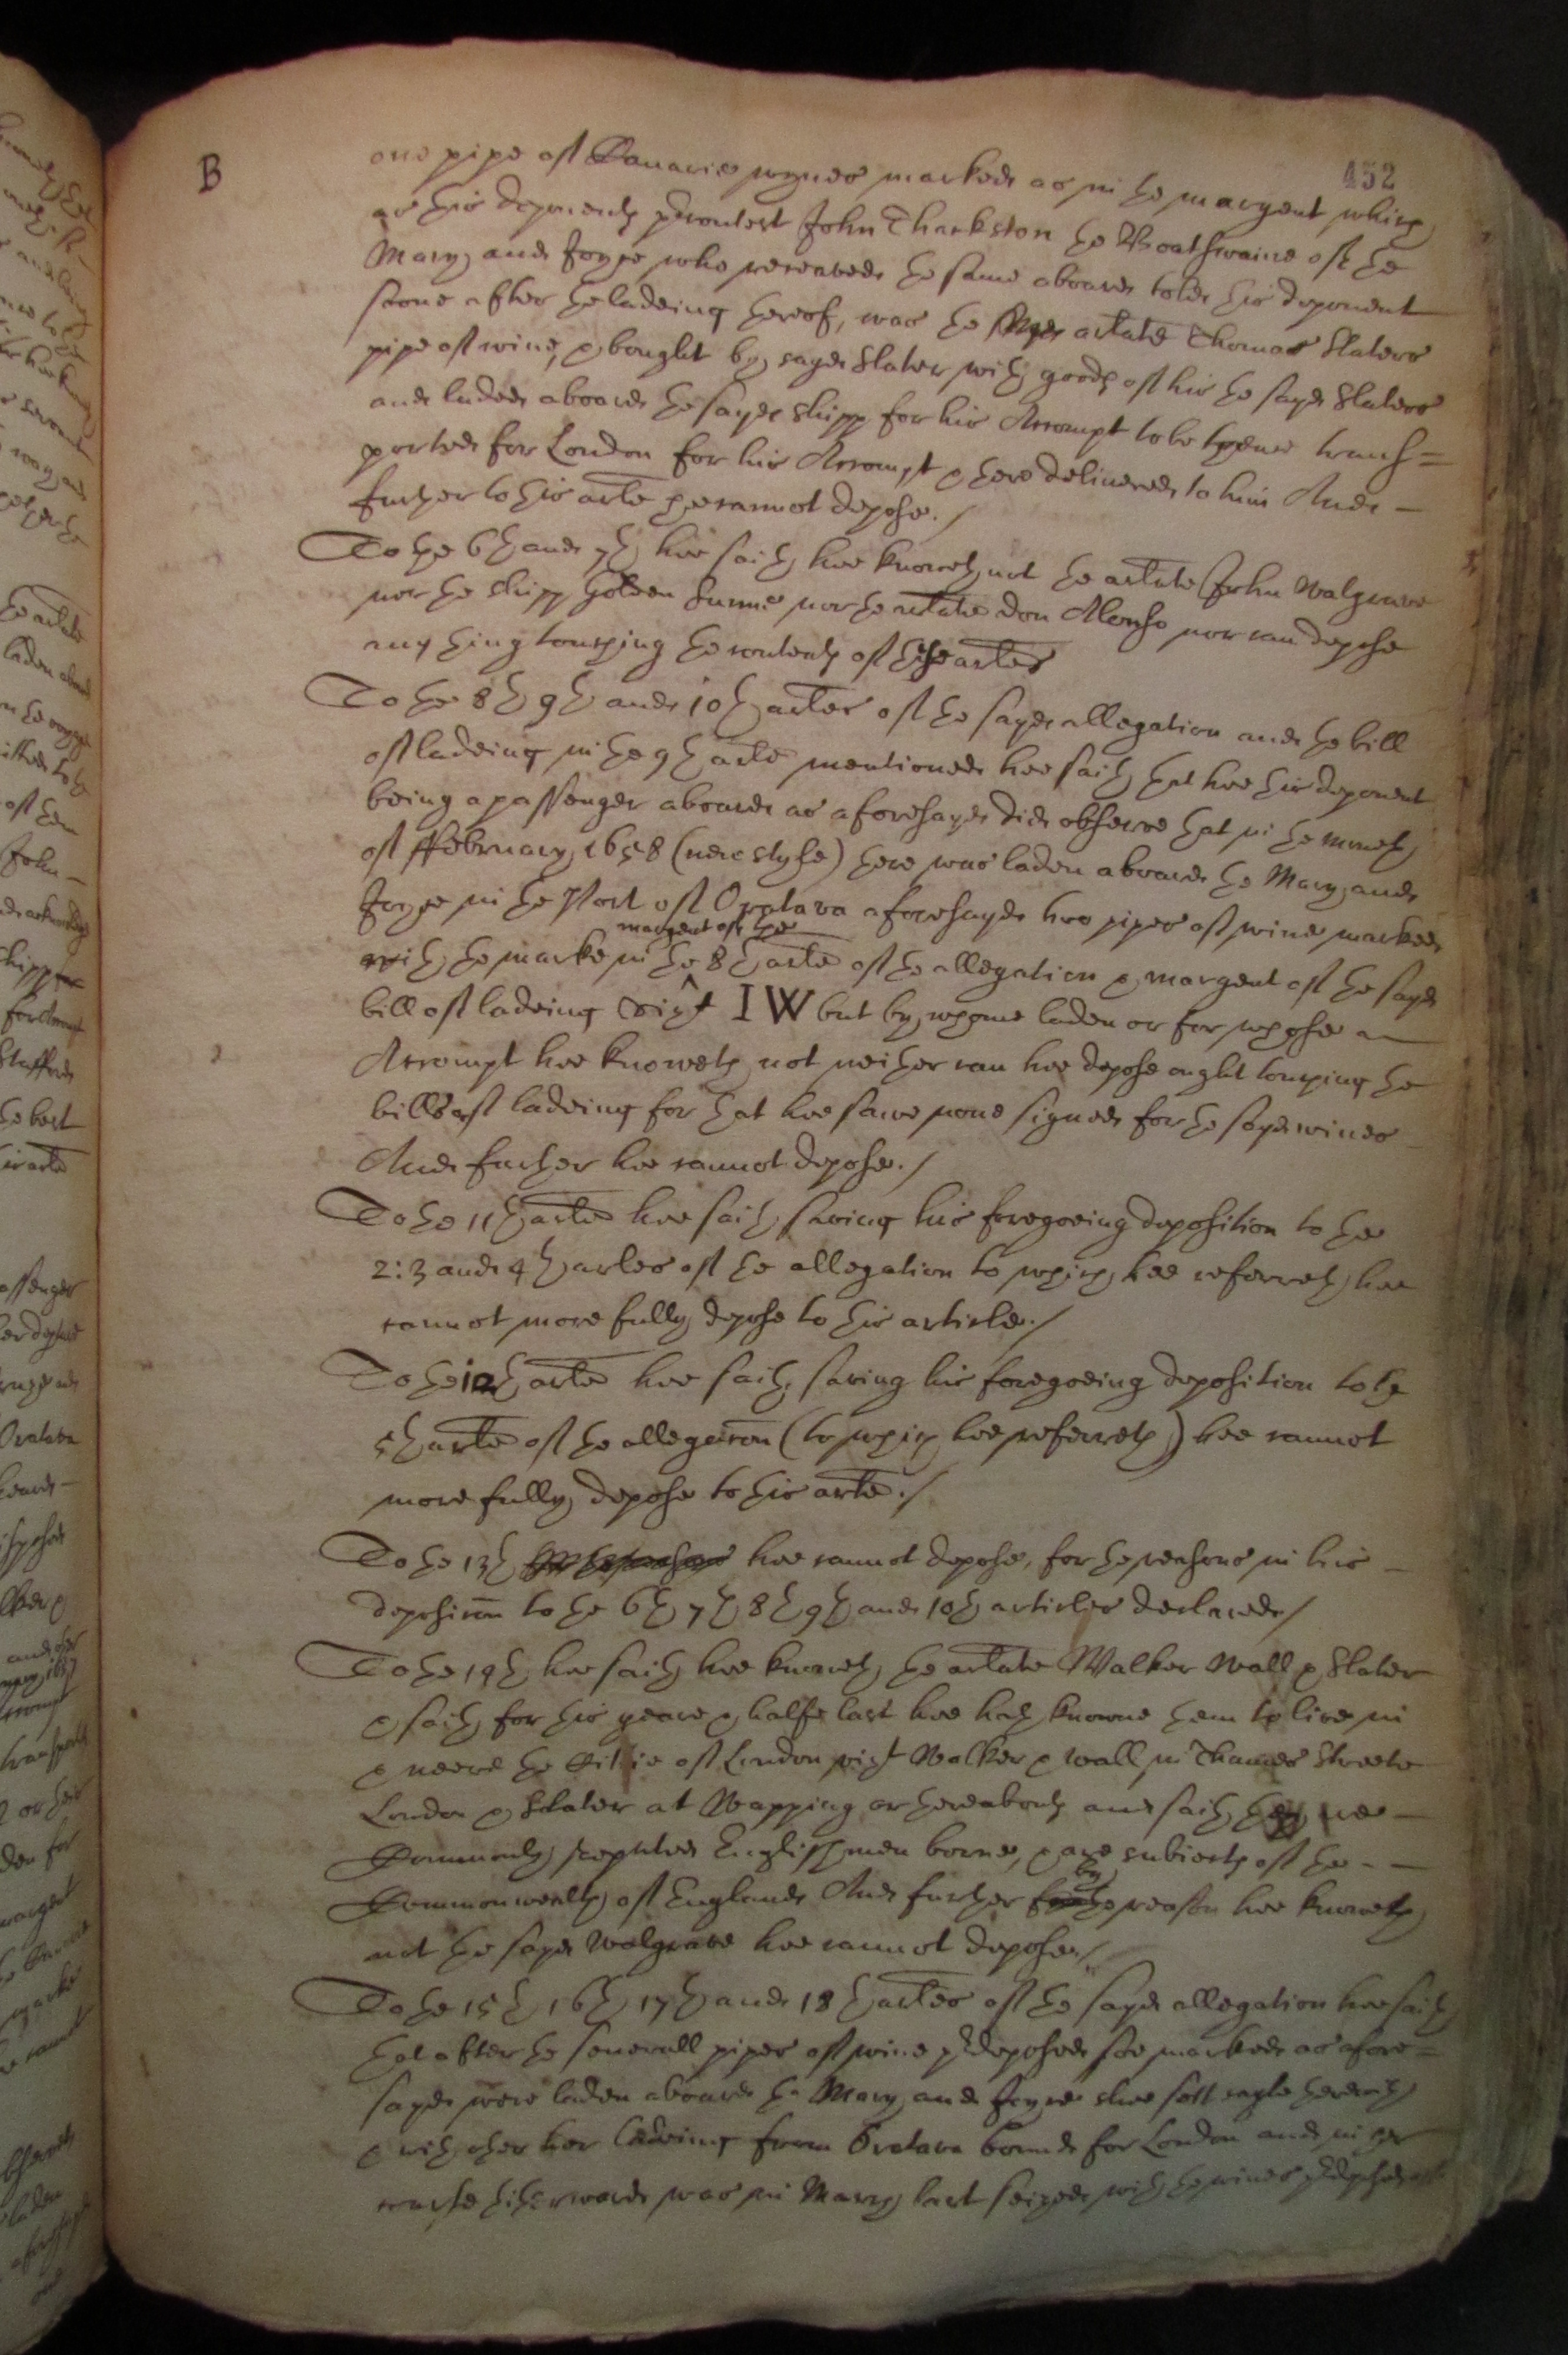 B
452
one pipe of Canarie wynes marked as in the margent which
as this deponents precontest John Thackston the Boathswaine of the
Mary and Joyce who received the same aboard tolde this deponent
soone after the ladeing thereof, was the artate Thomas Slaters
pipe of wine, & bought by sayd Slater with goods of his the sayd Slaters
and laded aboard the sayd shipp for his Accompt to be thence trans=
ported for London for his Accompt & there delivered to him And -
further to this arte he cannot depose ./
To the 6th and 7th hee saith hee knoweth not the artate John Walgrave
nor the shipp Golden Sunne nor the artate don Alonso nor can depose
any thing touching the contents of these artes
To the 8th 9th and 10th artes of the sayd allegation and the bill
of ladeing in the 9th arte mentioned hee saith that hee this deponent
being a passenger aboard as aforesayd did observe that in the moneth
of ffebruary 1658 (new style) there was laden aboard the Mary and
Joyce in the Port of Oratava aforesayd two pipes of wine marked
margent of the
with the marke in the 8th arte of the allegation & margent of the sayd
bill of ladeing vizt I W but by whome laden or for whose -
Accompt hee knoweth not neither can hee depose ought touching the
bills of ladeing for that hee sawe none signed for the sayd wines
And further hee cannot depose ./
To the 11th arte hee saith saving his foregoeing deposition to the
2: 3 and 4th artes of the allegation to which hee referreth hee
cannot more fully depose to this article ./
To the 12th arte hee saith saving his foregoeing deposition to the
5th arte of the allegacon (to which hee referreth) hee cannot
more fully depose to this arte ./
To the 13th hee cannot depose, for the reasons in his -
deposicon to the 6th 7th 8th 9th and 10th articles declared /
To the 14th hee saith hee knoweth the artate Walker Wall & Slater
& saith for this yeare & halfe last hee hath knowne them to live in
& neere the Cittie of London vizt Walker & Wall in Thames Streete
London & Slater at Wapping or thereabouts and saith they are -
Commonly reputed Englishmen borne, & are subiects of the - -
by
Commonwealth of England And further the reason hee knoweth
not the sayd Walgrave hee cannot depose ./
To the 15th 16th 17th and 18th artes of the sayd allegation hee saith
that after the severall pipes of wine predeposed soe marked as afore=
sayd were laden aboard the Mary and Joyce shee sett sayle therewith
& with other her ladeing from Oratava bound for London and in her
course hitherward was in March last seized with the wines predeposed of